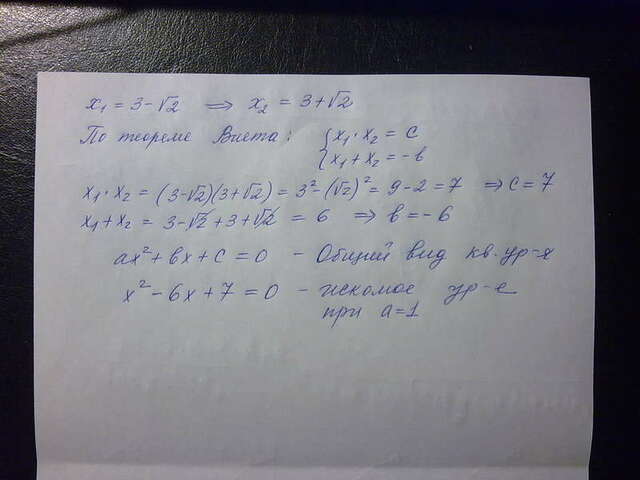 x₁ = 3-√2 ⇒ x₂ = 3+√2
По теореме Виета: {x₁·x₂ = c
{x₁+x₂ = -b
x₁·x₂ = (3-√2)(3+√2) = 3²-(√2)² = 9-2 = 7 ⇒ c = 7
x₁+x₂ = 3-√2+3+√2 = 6 ⇒ b = -6
ax²+bx+c = 0 - Общий вид кв. ур-я
x²-6x+7 = 0 - искомое ур-е
при a=1